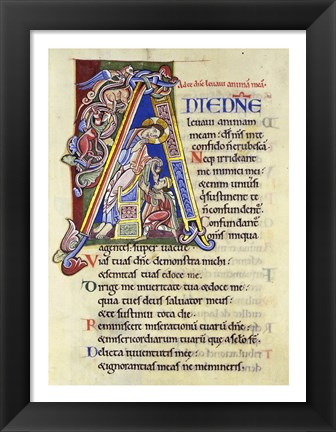 Ad te dñe leuaui animā meā.
AD TE DÑE
leuaui animam
meam: dš mš in te
confido n erubescā
Neq; irrideant
me inimici mei:
&enim uniūsi
q̄ sustinent te
n̄ confundent̄:
Confundant̄
om̄s iniqua
agentes: super uacue
Vias tuas dñe demonstra michi:
&semitas tuas edoce me.
Dirige me in ueritate tua &doce me:
quia tu es deus saluator meus:
&te sustinui tota die.
Reminiscere miserationū tuarū dñe:
&misericordiarum tuarū que a sc̄lo s̄t.
Delicta iuuentutis mee:
&ignorantias meas ne memineris